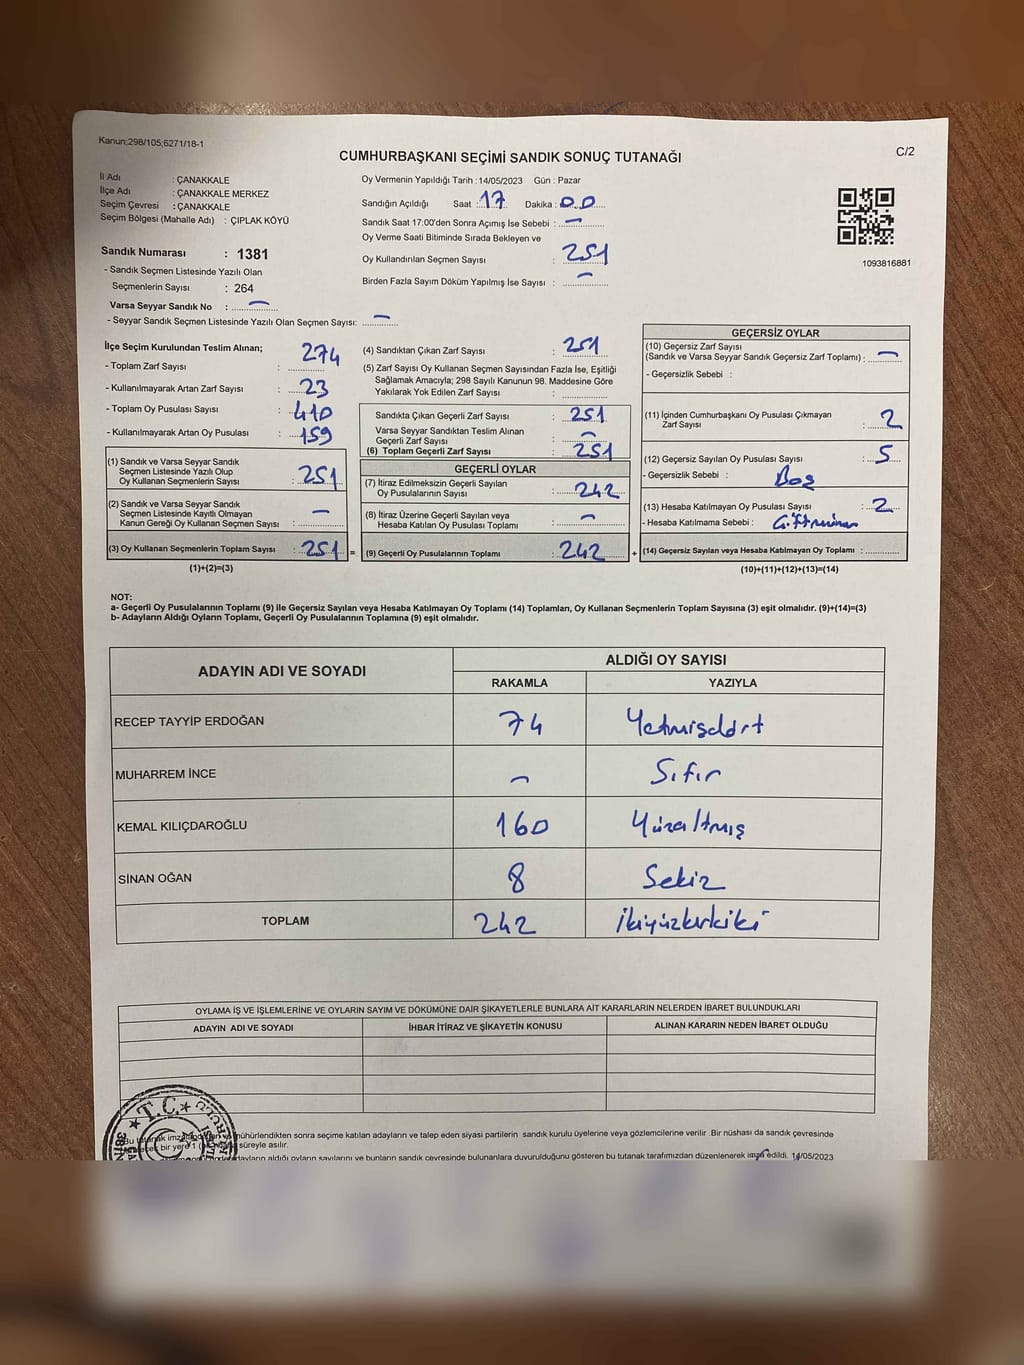 Kanun;298/105;6271/18-1
CUMHURBAŞKANI SEÇİMİ SANDIK SONUÇ TUTANAĞI
C/2
İl Adı : ÇANAKKALE
İlçe Adı : ÇANAKKALE MERKEZ
Seçim Çevresi : ÇANAKKALE
Seçim Bölgesi (Mahalle Adı) : ÇIPLAK KÖYÜ
Sandık Numarası : 1381
- Sandık Seçmen Listesinde Yazılı Olan
Seçmenlerin Sayısı : 264
Varsa Seyyar Sandık No : –
- Seyyar Sandık Seçmen Listesinde Yazılı Olan Seçmen Sayısı: –
Oy Vermenin Yapıldığı Tarih :14/05/2023 Gün : Pazar
Sandığın Açıldığı Saat : 17 Dakika : 00
Sandık Saat 17:00'den Sonra Açımış İse Sebebi : –
Oy Verme Saati Bitiminde Sırada Bekleyen ve
Oy Kullandırılan Seçmen Sayısı : 251
Birden Fazla Sayım Döküm Yapılmış İse Sayısı : –
1093816881
İlçe Seçim Kurulundan Teslim Alınan;
- Toplam Zarf Sayısı : 274
- Kullanılmayarak Artan Zarf Sayısı : 23
- Toplam Oy Pusulası Sayısı : 410
- Kullanılmayarak Artan Oy Pusulası : 159
(1) Sandık ve Varsa Seyyar Sandık
Seçmen Listesinde Yazılı Olup
Oy Kullanan Seçmenlerin Sayısı : 251
(2) Sandık ve Varsa Seyyar Sandık
Seçmen Listesinde Kayıtlı Olmayan
Kanun Gereği Oy Kullanan Seçmen Sayısı : –
(3) Oy Kullanan Seçmenlerin Toplam Sayısı : 251 =
(1)+(2)=(3)
(4) Sandıktan Çıkan Zarf Sayısı : 251
(5) Zarf Sayısı Oy Kullanan Seçmen Sayısından Fazla İse, Eşitliği
Sağlamak Amacıyla; 298 Sayılı Kanunun 98. Maddesine Göre
Yakılarak Yok Edilen Zarf Sayısı :
Sandıkta Çıkan Geçerli Zarf Sayısı : 251
Varsa Seyyar Sandıktan Teslim Alınan
Geçerli Zarf Sayısı : –
(6) Toplam Geçerli Zarf Sayısı : 251
GEÇERLİ OYLAR
(7) İtiraz Edilmeksizin Geçerli Sayılan
Oy Pusulalarının Sayısı : 242
(8) İtiraz Üzerine Geçerli Sayılan veya
Hesaba Katılan Oy Pusulası Toplamı : –
(9) Geçerli Oy Pusulalarının Toplamı : 242 +
GEÇERSİZ OYLAR
(10) Geçersiz Zarf Sayısı
(Sandık ve Varsa Seyyar Sandık Geçersiz Zarf Toplamı) : –
- Geçersizlik Sebebi :
(11) İçinden Cumhurbaşkanı Oy Pusulası Çıkmayan
Zarf Sayısı : 2
(12) Geçersiz Sayılan Oy Pusulası Sayısı : 5
- Geçersizlik Sebebi : Boş
(13) Hesaba Katılmayan Oy Pusulası Sayısı : 2
- Hesaba Katılmama Sebebi :
(14) Geçersiz Sayılan veya Hesaba Katılmayan Oy Toplamı :
(10)+(11)+(12)+(13)=(14)
NOT:
a- Geçerli Oy Pusulalarının Toplamı (9) ile Geçersiz Sayılan veya Hesaba Katılmayan Oy Toplamı (14) Toplamları, Oy Kullanan Seçmenlerin Toplam Sayısına (3) eşit olmalıdır. (9)+(14)=(3)
b- Adayların Aldığı Oyların Toplamı, Geçerli Oy Pusulalarının Toplamına (9) eşit olmalıdır.
ADAYIN ADI VE SOYADI ALDIĞI OY SAYISI
RAKAMLA YAZIYLA
RECEP TAYYİP ERDOĞAN 74 Yetmişdört
MUHARREM İNCE – Sıfır
KEMAL KILIÇDAROĞLU 160 Yüzaltmış
SİNAN OĞAN 8 Sekiz
TOPLAM 242 İkiyüzkırkiki
OYLAMA İŞ VE İŞLEMLERİNE VE OYLARIN SAYIM VE DÖKÜMÜNE DAİR ŞİKAYETLERLE BUNLARA AİT KARARLARIN NELERDEN İBARET BULUNDUKLARI
ADAYIN ADI VE SOYADI İHBAR İTİRAZ VE ŞİKAYETİN KONUSU ALINAN KARARIN NEDEN İBARET OLDUĞU
T.C.
Bu tutanak mühürlendikten sonra seçime katılan adayların ve talep eden siyasi partilerin sandık kurulu üyelerine veya gözlemcilerine verilir .Bir nüshası da sandık çevresinde
bir yere süreyle asılır.
adayların aldığı oyların sayılarını ve bunların sandık çevresinde bulunanlara duyurulduğunu gösteren bu tutanak tarafımızdan düzenlenerek imza edildi. 14/05/2023